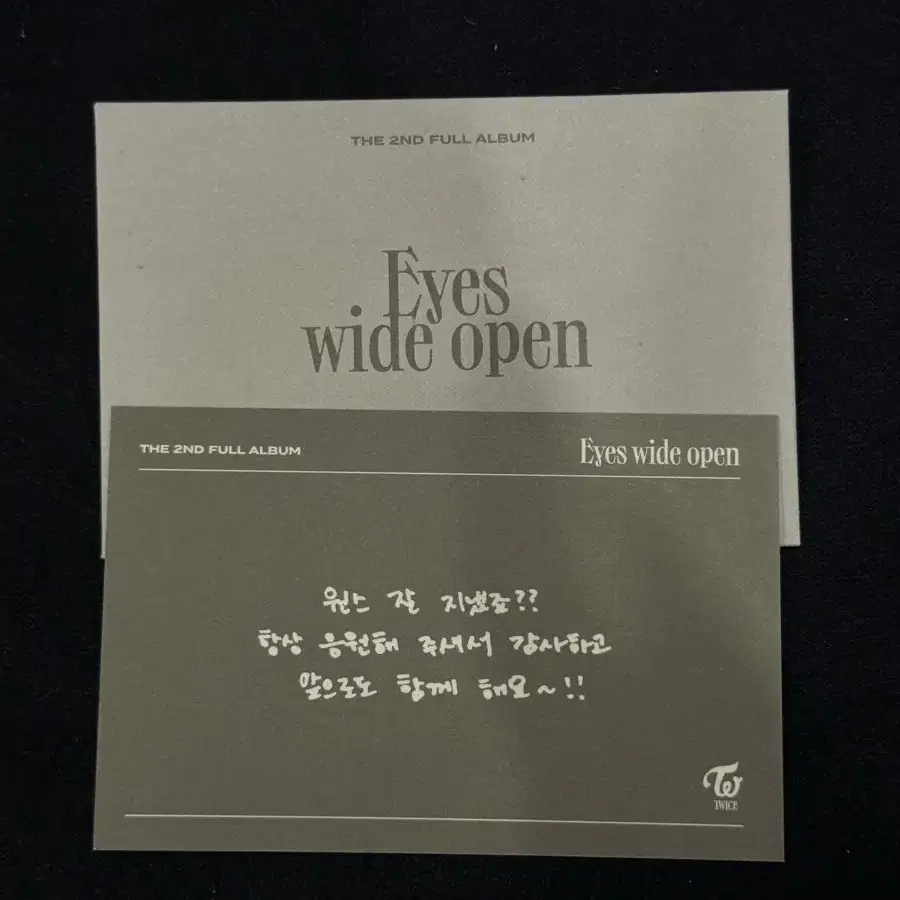 THE 2ND FULL ALBUM
Eyes
wide open
THE 2ND FULL ALBUM
Eyes wide open
원스 잘 지냈죠??
항상 응원해 주셔서 감사하고
앞으로도 함께 해요~!!
TW
TWICE